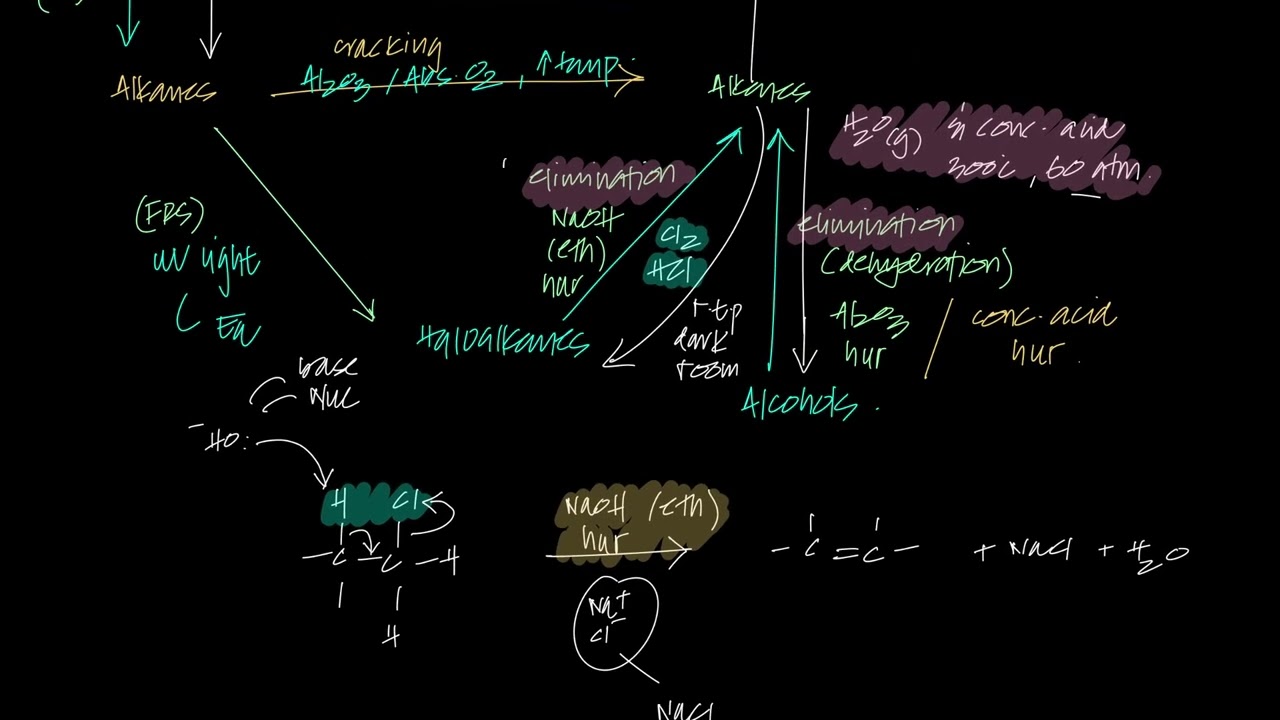 cracking
Al2O3 / Abs. O2, ↑ temp.
Alkanes
Alkenes
H2O(g) in conc. acid
300c, 60 atm.
elimination
NaOH
(eth)
hur
Cl2
HCl
r.t.p
dark
room
elimination
(dehydration)
Al2O3
hur
/ conc. acid
hur.
(FRS)
uv light
( Ea
Haloalkanes
Alcohols.
base
Nuc
-HO:
H Cl
-C-C-H
H
NaOH (eth)
hur
-C=C- + NaCl + H2O
Na+
Cl-
NaCl